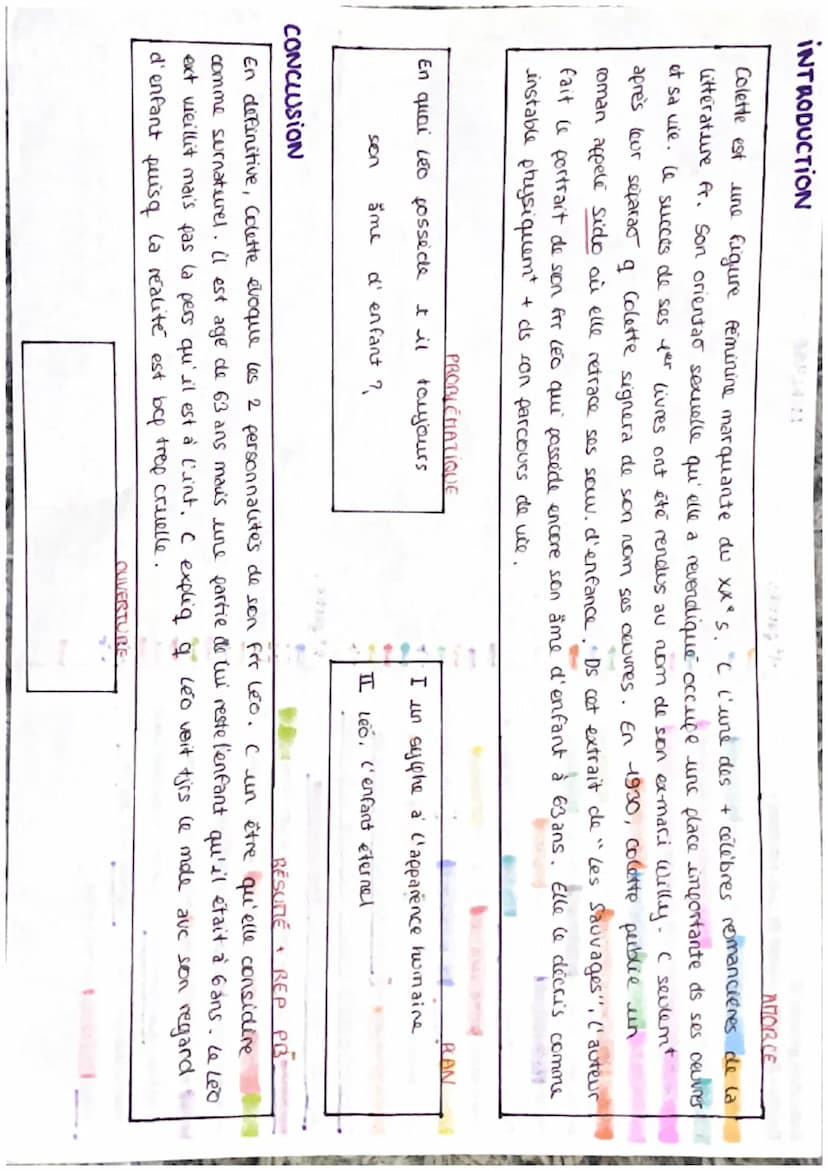 INTRODUCTION
AMORCE
Colette est une figure féminine marquante du XXe s. C l'une des + célèbres romancières de la
littérature fr. Son orientaº sexuelle qu'elle a revendiqué occupe une place importante ds ses œuvres
et sa vie. Le succès de ses 1er livres ont été rendus au nom de son ex-mari Willy. C seulemt
après leur séparaº q Colette signera de son nom ses œuvres. En 1930, Colette publie un
roman appelé Sido où elle retrace ses souv. d'enfance. Ds cet extrait de "Les Sauvages", l'auteur
fait le portrait de son frr Léo qui possède encore son âme d'enfant à 63 ans. Elle le décris comme
instable physiquemt + ds son parcours de vie.
PROBLÉMATIQUE
En quoi Léo possède t il toujours
son âme d'enfant ?
PLAN
I un sylphe à l'apparence humaine
II Léo, l'enfant éternel
CONCLUSION
RÉSUMÉ + REP PB
En définitive, Colette évoque les 2 personnalités de son frr Léo. C un être qu'elle considère
comme surnaturel. il est agé de 63 ans mais une partie de lui reste l'enfant qu'il était à 6 ans. Le Léo
ext vieillit mais pas la pers qu'il est à l'int. C expliq q Léo voit tjrs le mde avc son regard
d'enfant puisq la réalité est bcp trop cruelle.
OUVERTURE